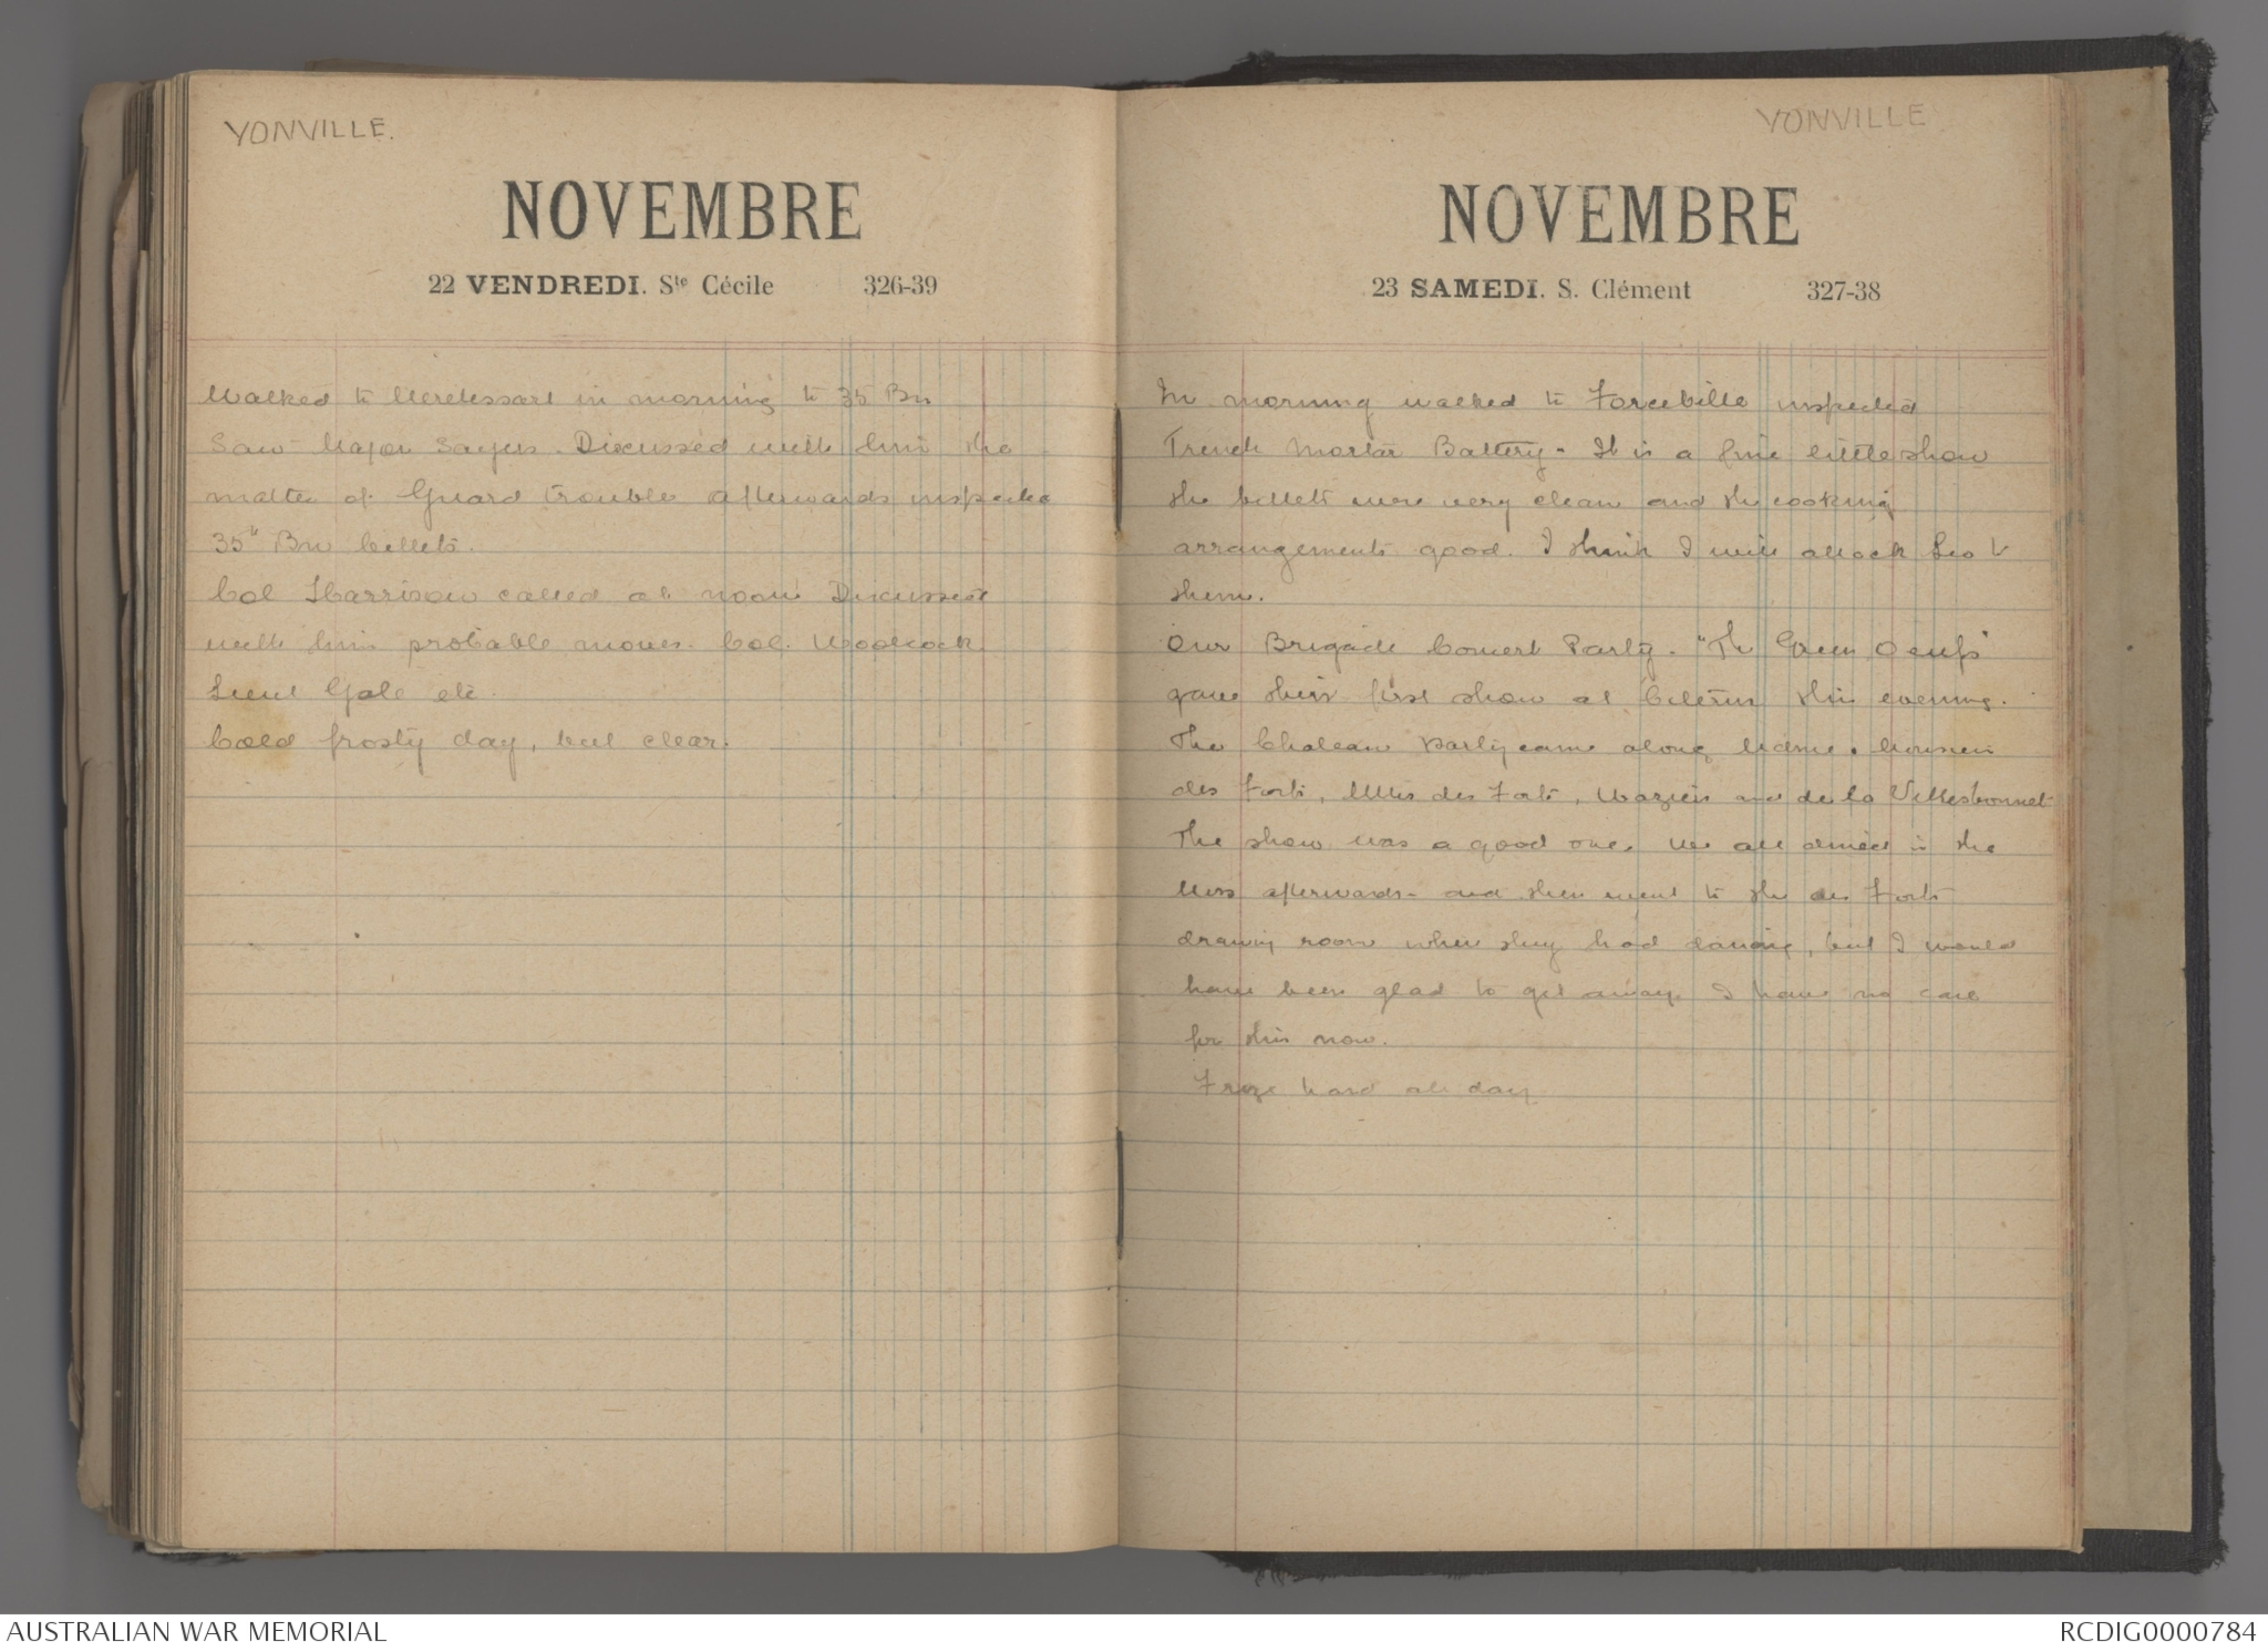 YONVILLE.
NOVEMBRE
22 VENDREDI. Ste Cécile 326-39
Walked to Merelessart in morning to 35 Bn
Saw Major Sayers. Discussed with him the
matter of Guard trouble afterwards inspected
35" Bn billets.
Col Harrison called at noon Discussed
with him probable moves. Col. Woolcock
Lieut Gale etc.
Cold frosty day, but clear.
YONVILLE
NOVEMBRE
23 SAMEDI. S. Clément 327-38
In morning walked to Forceville inspected
Trench Mortar Battery. It is a fine little show
the billets were very clean and the cooking
arrangements good. I think I will attach Leo to
them.
Our Brigade Concert Party. "The Green Oeufs"
gave their first show at Citerne this evening.
The Chateau party came along Madme &
des Forts, Mlles des Forts, Waziers and de la Villesbonnet
The show was a good one. We all dined in the
Mess afterwards and then went to the des Forts
drawing room where they had dancing, but I would
have been glad to get away. I have no care
for this now.
Froze hard all day
AUSTRALIAN WAR MEMORIAL
RCDIG0000784